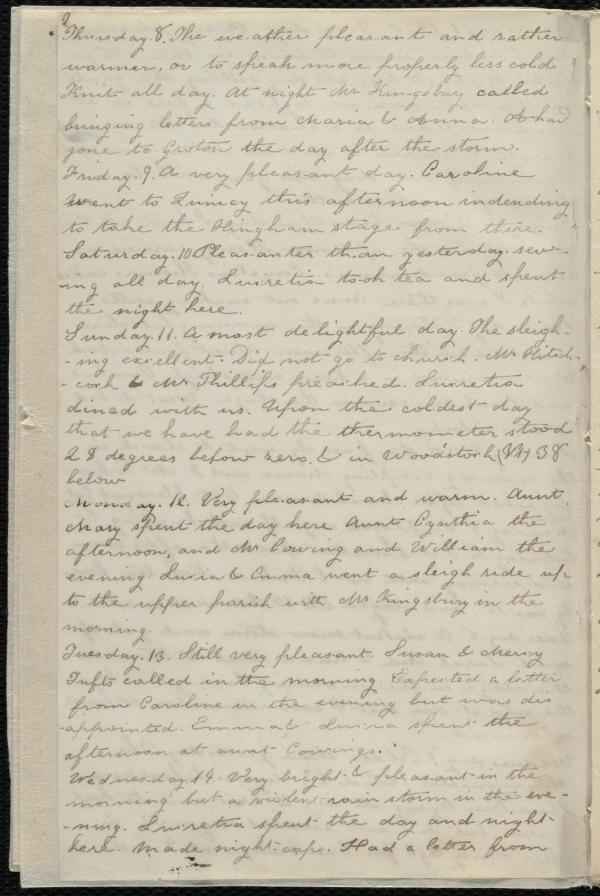 2
Thursday. 8. The weather pleasant and rather
warmer, or to speak more properly less cold
Knit all day. At night Mr Kingsbury called
bringing letters from Maria & Anna. A had
gone to Groton the day after the storm.
Friday. 9. A very pleasant day. Caroline
went to Quincy this afternoon indending
to take the Hingham stage from there.
Saturday. 10 Pleasanter than yesterday. sew-
ing all day. Lucretia took tea and spent
the night here.
Sunday. 11. A most delightful day. The sleigh-
-ing excellent. Did not go to church. Mr Hitch-
-cock & Mr Phillips preached. Lucretia
dined with us. Upon the coldest day
that we have had the thermometer stood
28 degrees below zero. & in Woodstock (Vt) 38
below
Monday. 12. Very pleasant and warm. Aunt
Mary spent the day here Aunt Cynthia the
afternoon, and Mr Cowing and William the
evening. Lucia & Emma went a sleigh ride up
to the upper parish with Mr Kingsbury in the
morning.
Tuesday. 13. Still very pleasant. Susan & Mercy
Tufts called in the morning. Expected a letter
from Caroline in the evening but was dis
-appointed. Emma & Lucia spent the
afternoon at aunt Cowings.
Wednesday 14. Very bright & pleasant in the
morning but a violent rain storm in the eve-
-ning. Lucretia spent the day and night
here. Made night-caps. Had a letter from